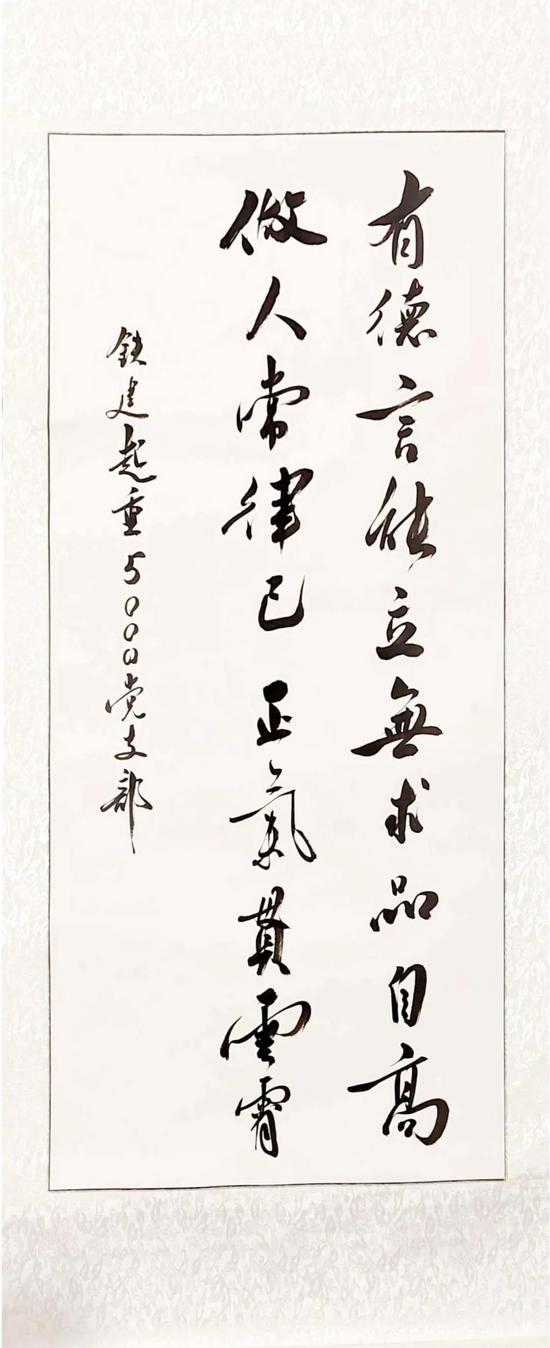 有德言能立無求品自高
做人常律己正氣貫雲霄
鉄建起重5000党支部